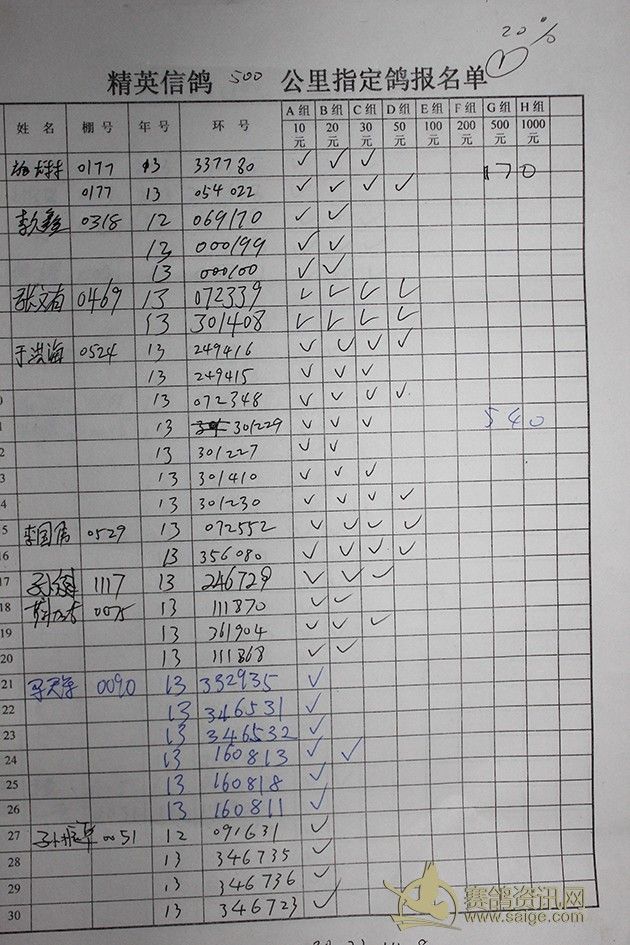 20%
1
精英信鸽 500 公里指定鸽报名单
姓 名 棚 号 年 号 环 号 A 组 B 组 C 组 D 组 E 组 F 组 G 组 H 组
10元 20元 30元 50元 100元 200元 500元 1000元
0177 13 337780 ✓ ✓ ✓ 170
0177 13 054022 ✓ ✓ ✓ ✓
李鑫 0318 12 069170 ✓ ✓
12 000199 ✓ ✓
13 000100 ✓ ✓
张文有 0469 13 072339 ✓ ✓ ✓ ✓
13 301408 ✓ ✓ ✓ ✓
于洪海 0524 13 249416 ✓ ✓ ✓ ✓
13 249415 ✓ ✓ ✓
13 072348 ✓ ✓ ✓ ✓
13 301229 ✓ ✓ ✓ 540
13 301227 ✓ ✓
3 13 301410 ✓ ✓ ✓
4 13 301230 ✓ ✓ ✓ ✓
5 李国伟 0529 13 072552 ✓ ✓ ✓ ✓
16 13 356080 ✓ ✓ ✓ ✓
17 1117 13 246729 ✓ ✓ ✓
18 0075 13 111870 ✓ ✓
19 13 261904 ✓ ✓ ✓
20 13 111868 ✓ ✓
21 0090 13 332935 ✓
22 13 346531 ✓
23 13 346532 ✓
24 13 160813 ✓ ✓
25 13 160818 ✓
26 13 160811 ✓
27 0051 12 091631 ✓
28 13 346735 ✓
29 13 346736 ✓
30 13 346723 ✓
赛鸽资讯网
www.saige.com